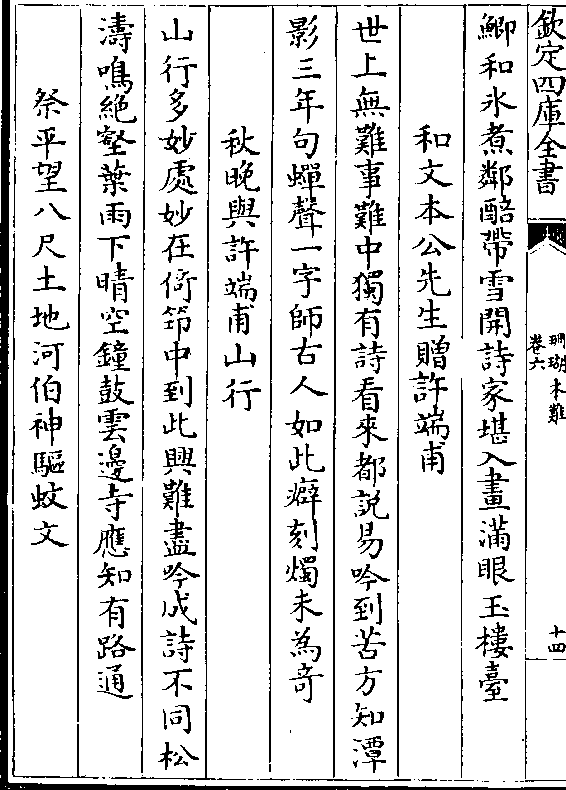 欽定四庫全書
珊瑚木難
卷六
十四
鯽和氷煮鄰醅帶雪開詩家堪入畫滿眼玉樓臺
和文本公先生贈許端甫
世上無難事難中獨有詩看來都說易吟到苦方知潭
影三年句蟬聲一字師古人如此癖刻燭未為竒
秋晚與許端甫山行
山行多妙處妙在倚笻中到此興難盡吟成詩不同松
濤鳴絶壑葉雨下晴空鐘鼓雲邊寺應知有路通
祭平望八尺土地河伯神驅蚊文